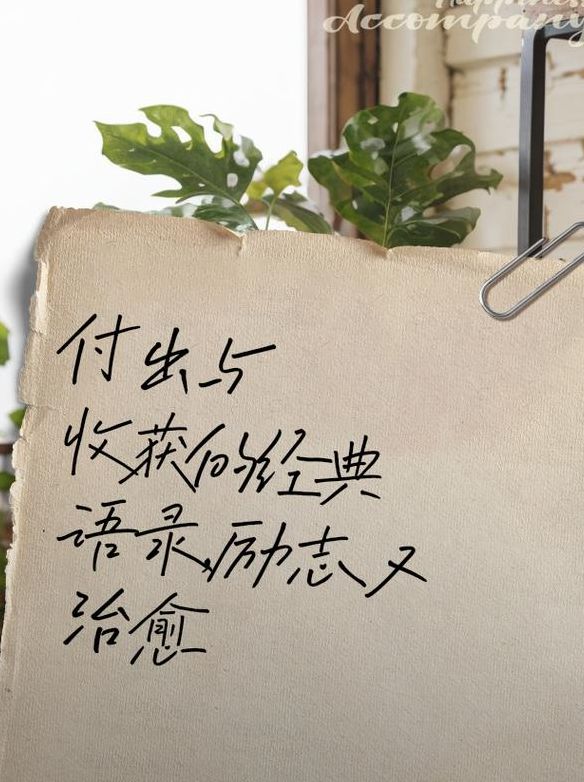 Happiness
Accompany
付出与
收获的经典
语录,励志又
治愈